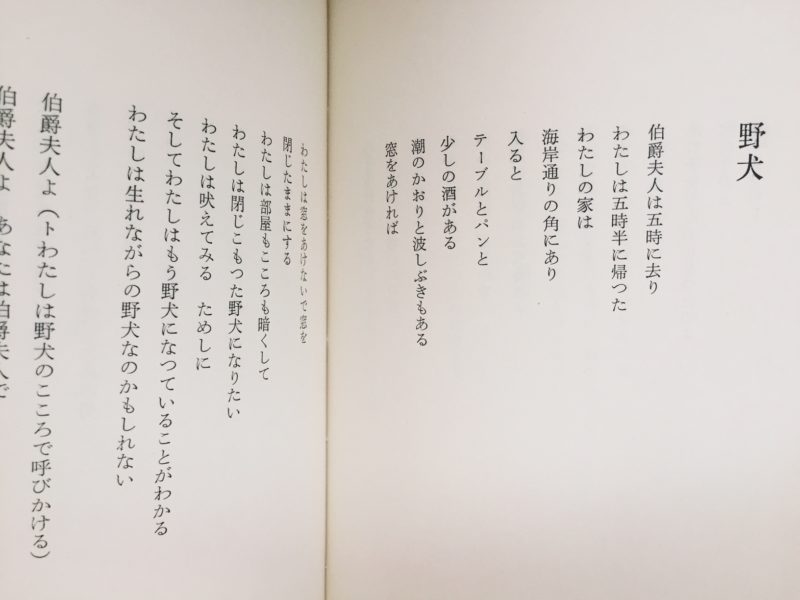 野犬
伯爵夫人は五時に去り
わたしは五時半に帰つた
わたしの家は
海岸通りの角にあり
入ると
テーブルとパンと
少しの酒がある
潮のかおりと波しぶきもある
窓をあければ
わたしは窓をあけないで窓を
閉じたままにする
わたしは部屋もこころも暗くして
わたしは閉じこもつた野犬になりたい
わたしは吠えてみる ためしに
そしてわたしはもう野犬になつていることがわかる
わたしは生れながらの野犬なのかもしれない
伯爵夫人よ(トわたしは野犬のこころで呼びかける)
伯爵夫人よ あなたは伯爵夫人で